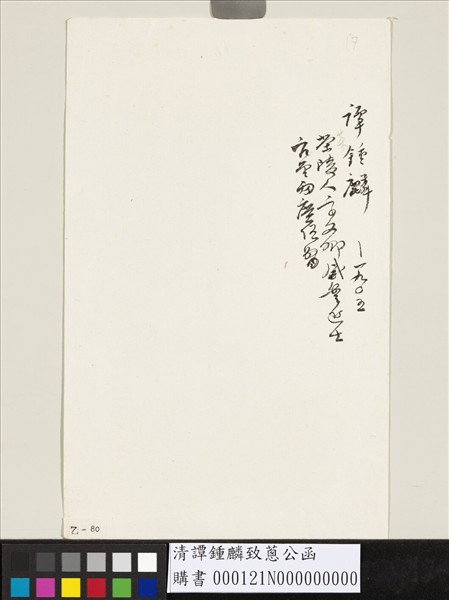 17
譚鍾麟 ｜一九〇五
茶陵人字文卿咸豐進士
官至兩廣總督
乙-80
清譚鍾麟致蔥公函
購書 000121N000000000